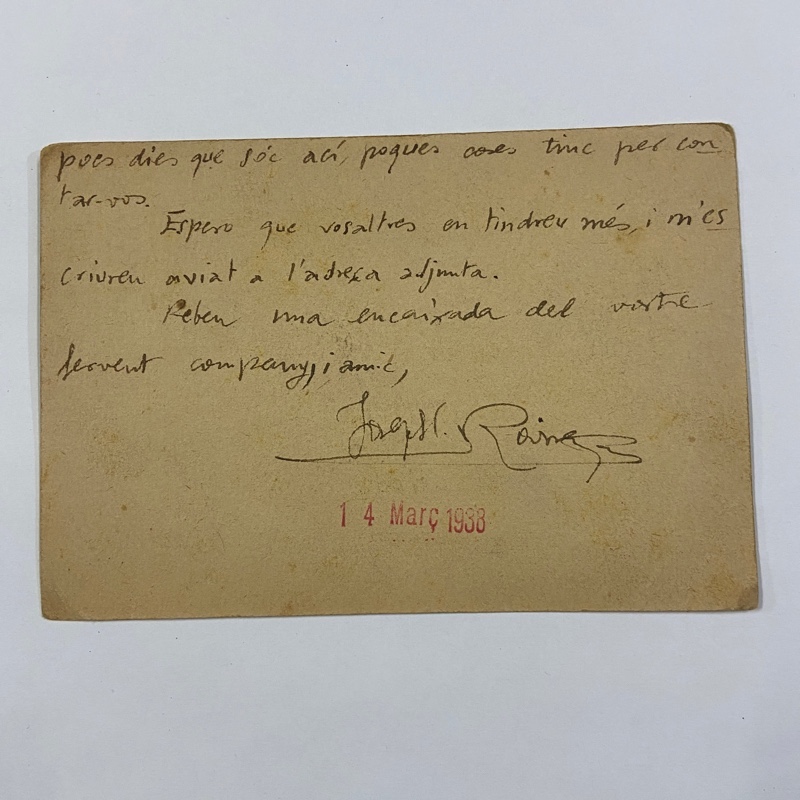 pocs dies que sóc ací, poques coses tinc per con
tar-vos.
Espero que vosaltres en tindreu més, i m'es
criureu aviat a l'adreça adjunta.
Reben una encaixada del vostre
fervent company, i amic,
Joseph
14 Març 1938